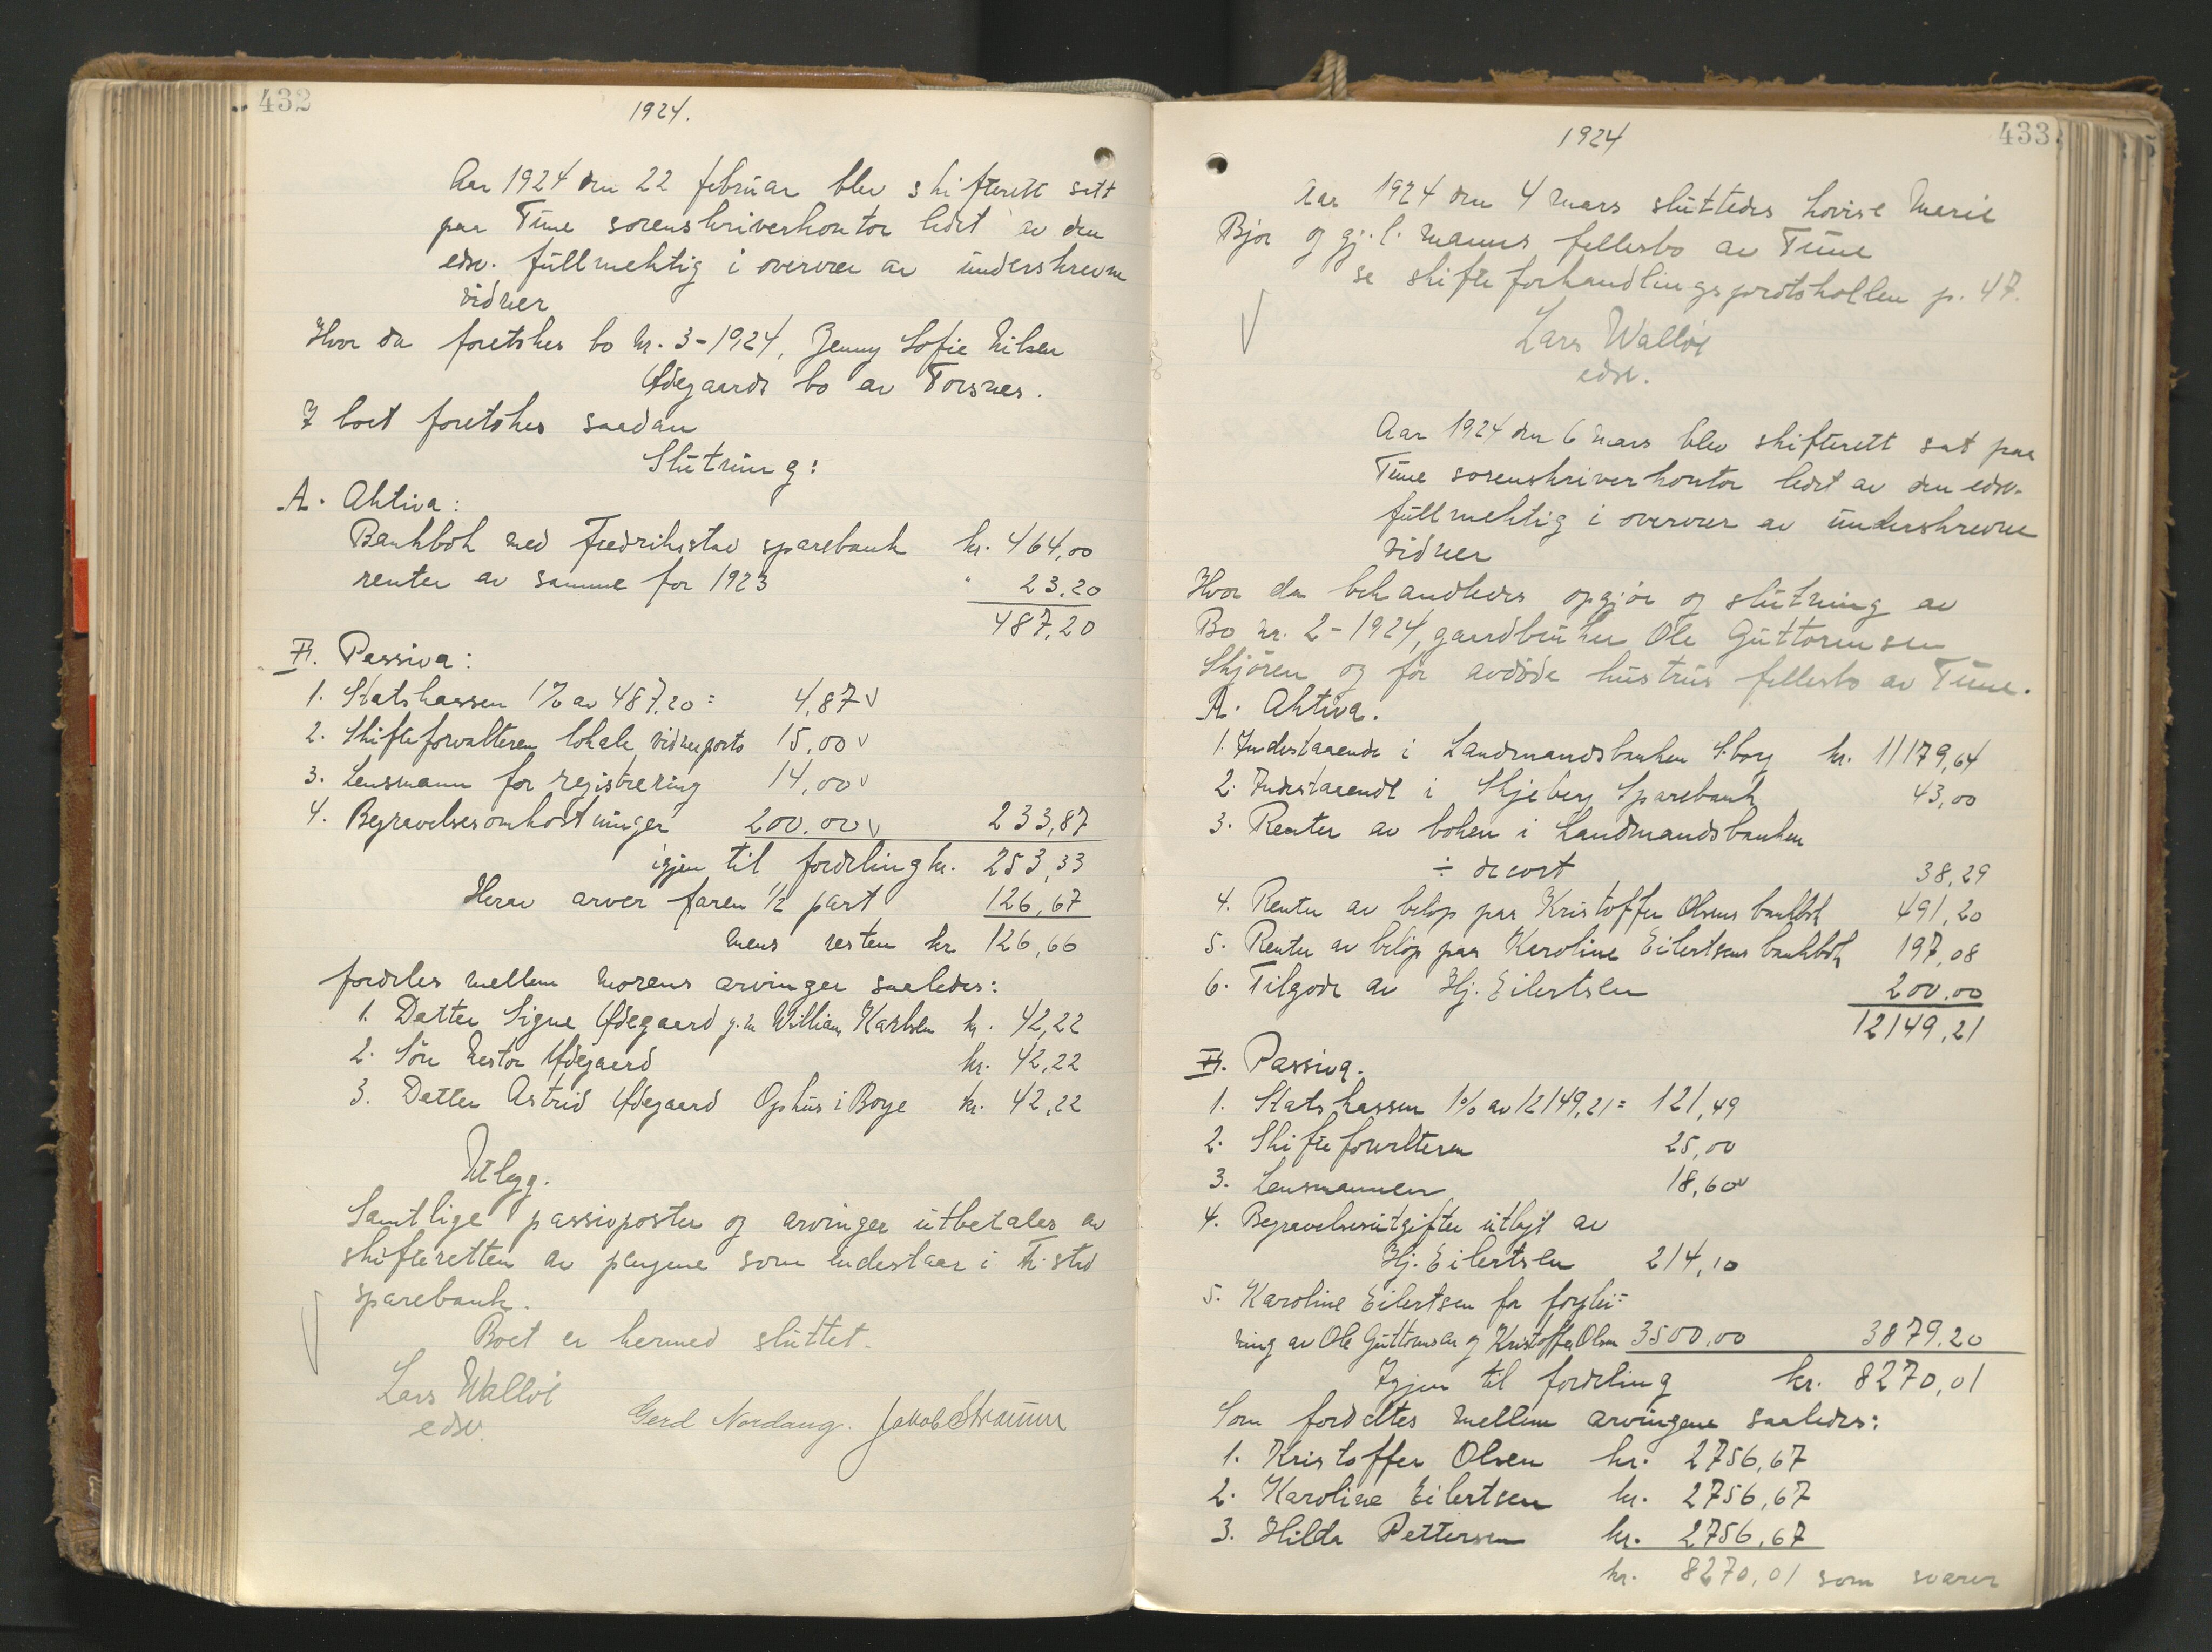 432
1924.
Aar 1924 den 22 februar blev skifterett satt
paa Tune sorenskriverkontor ledet av den
edsv. fullmektig i overvær av underskrevne
vidner
Hvor da foretokes bo nr. 3-1924, Jenny Sofie Nilsen
Ødegaards bo av Torsnes.
I boet foretokes saadan
Slutning:
A. Aktiva:
Bankbok med Fredrikstad sparebank kr. 464,00
renter av samme for 1923 " 23.20
487,20
B. Passiva:
1. Statskassen 1% av 487.20 = 4,87 v
2. Skifteforvalteren lokale vidner porto 15,00 v
3. Lensmann for registrering 14,00 v
4. Begravelsesomkostninger 200.00 v 233,87
igjen til fordeling kr. 253,33
Herav arver faren 1/2 part 126,67
mens resten kr 126,66
fordeles mellem morens arvinger saaledes:
1. Datter Signe Ødegaard g.m. William Karlsen kr. 42,22
2. Søn Nestor Ødegaard kr. 42,22
3. Datter Astrid Ødegaard Ophus i Borge kr. 42,22
Utlegg.
Samtlige passivposter og arvinger utbetales av
skifteretten av pengene som indestaar i Fr.stad
sparebank.
Boet er hermed sluttet.
Lars Walløe
edsv.
Gerd Nordaug. Jakob Straume
433
1924
Aar 1924 den 4 mars sluttedes Lovise Marie
Bjor og gj. l. manns fellesbo av Tune
se skifteforhandlingsprotokollen p. 47.
Lars Walløe
edsv.
Aar 1924 den 6 mars blev skifterett sat paa
Tune sorenskriverkontor ledet av den edsv.
fullmektig i overvær av underskrevne
vidner
Hvor da behandledes opgjør og slutning av
Bo nr. 2-1924, gaardbruker Ole Guttormsen
Skjøren og før avdøde hustrus fellesbo av Tune.
A. Aktiva.
1. Indestaaende i Landmandsbanken S.borg kr. 11179,64
2. Indestaaende i Skjeberg Sparebank 43,00
3. Renter av boken i Landmandsbanken
÷ decort 38,29
4. Renter av beløp paa Kristoffer Olsens bankbok 491,20
5. Renter av beløp paa Karoline Eilertsens bankbok 197,08
6. Tilgode av Hj. Eilertsen 200.00
12149,21
B. Passiva.
1. Statskassen 1% av 12149,21 = 121,49
2. Skifteforvalteren 25,00
3. Lensmannen 18,60 v
4. Begravelsesutgifter utlagt av
Hj. Eilertsen 214,10
5. Karoline Eilertsen for forplei=
ning av Ole Guttormsen og Kristoffer Olsen 3500,00 3879.20
Igjen til fordeling kr. 8270,01
Som fordeltes mellem arvingene saaledes:
1. Kristoffer Olsen kr. 2756,67
2. Karoline Eilertsen kr. 2756,67
3. Hilda Pettersen kr. 2756,67
kr. 8270,01 som svarer